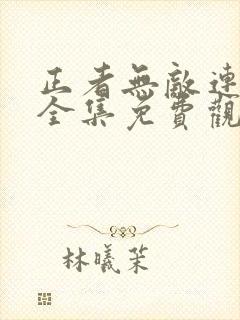 正者無敵連
全集免費觀
林曦茉